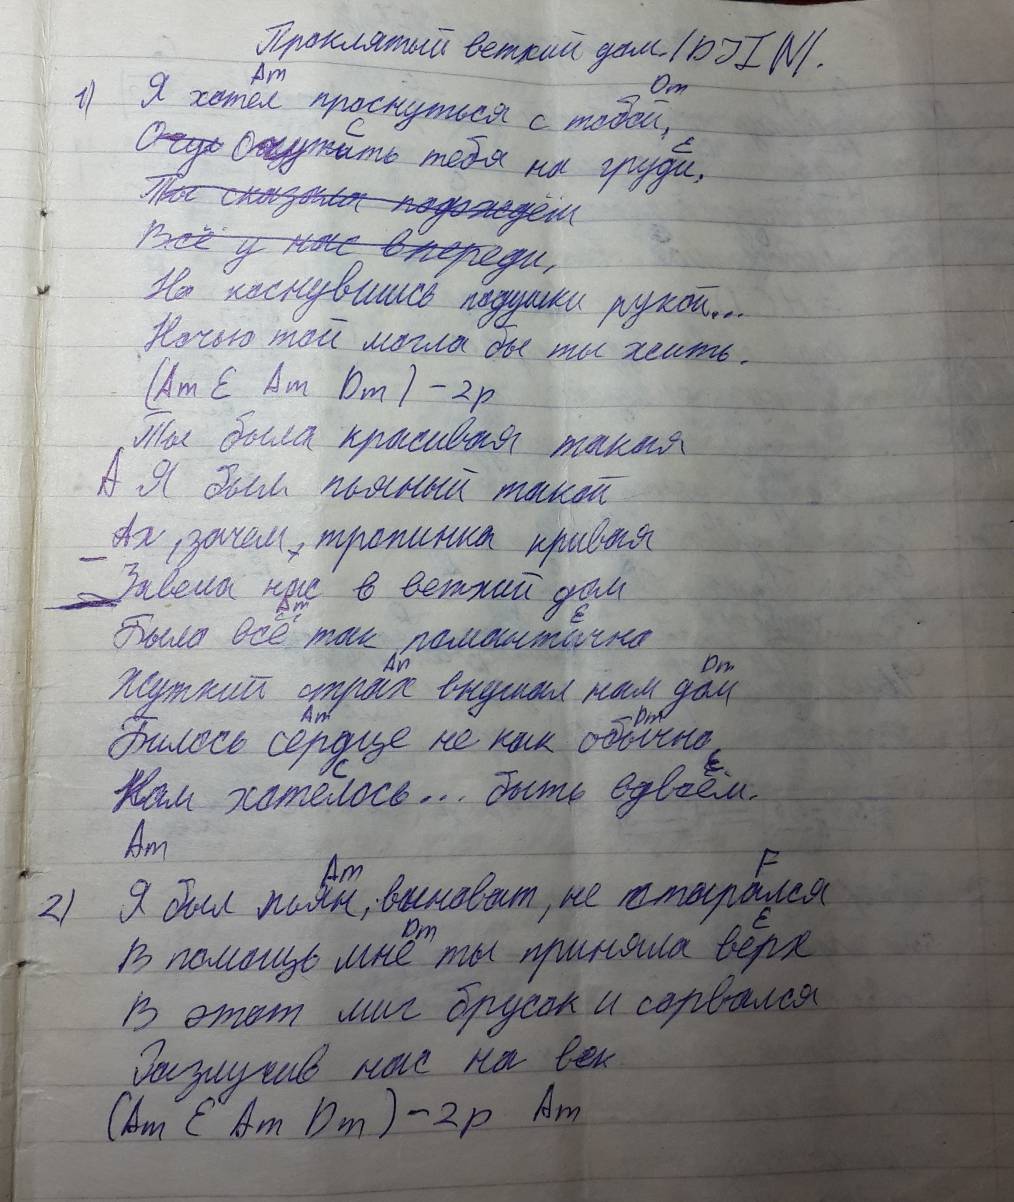 Проклятый ветхий дом. /DJIN/.
Am Dm
1) Я хотел проснуться с тобой,
C E
Ощу Ощутить тебя на груди,
Ты сказала подождём
Всё у нас впереди,
Но коснувшись подушки рукой...
Ночью той могла бы ты жить.
(Am E Am Dm) - 2р
Ты была красивая такая
А Я был пьяный такой
- Ах, зачем, тропинка кривая
Завела нас в ветхий дом
Am E
Было всё так романтично
Am Dm
Жуткий страх внушал нам дом
Am Dm
Билось сердце не как обычно
C E
Нам хотелось... быть вдвоём.
Am
Am F
2) Я был пьян, виноват, не старался
Dm E
В помощь мне ты приняла верх
В этот миг брусок и сорвался
Разлучив нас на век
(Am E Am Dm) - 2р Am